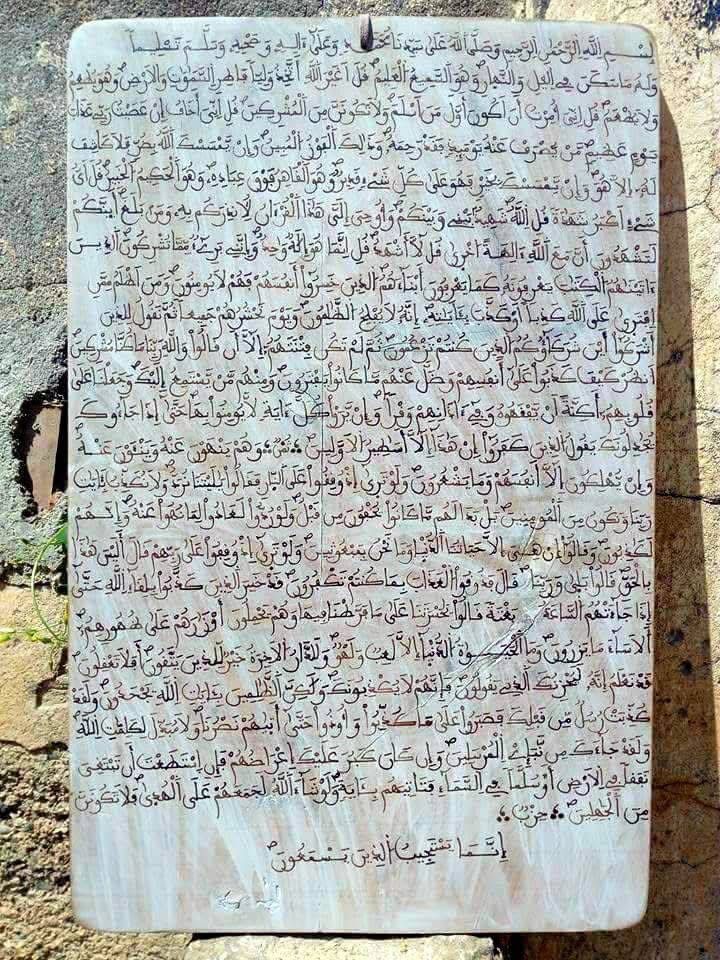 بسم الله الرحمن الرحيم وصلى الله على سيدنا محمد وعلى ءاله وصحبه وسلم تسليما
وله ما سكن في اليل والنهار وهو السميع العليم قل اغير الله أتخذ وليا فاطر السموت والارض وهو يطعم
ولا يطعم قل اني أمرت أن أكون أول من أسلم ولا تكونن من المشركين قل إني أخاف إن عصيت ربي عذاب
يوم عظيم من يصرف عنه يومئذ فقد رحمه وذلك الفوز المبين وإن يمسسك الله بضر فلا كاشف
له إلا هو وإن يمسسك بخير فهو على كل شيء قدير وهو القاهر فوق عباده وهو الحكيم الخبير قل أي
شيء اكبر شهدة قل الله شهيد بيني وبينكم وأوحي إلي هذا القرءان لأنذركم به ومن بلغ أينكم
لتشهدون أن مع الله ءالهة اخرى قل لا أشهد قل إنما هو إله وحد وإنني بريء مما تشركون الذين
ءاتينهم الكتب يعرفونه كما يعرفون أبناءهم الذين خسروا أنفسهم فهم لا يومنون ومن اظلم ممن
افترى على الله كذبا أو كذب بئايته إنه لا يفلح الظلمون ويوم نحشرهم جميعا ثم نقول للذين
أشركوا أين شركاؤكم الذين كنتم تزعمون ثم لم تكن فتنتهم إلا أن قالوا والله ربنا ما كنا مشركين
انظر كيف كذبوا على أنفسهم وضل عنهم ما كانوا يفترون ومنهم من يستمع إليك وجعلنا على
قلوبهم أكنة أن يفقهوه وفي ءاذانهم وقرا وإن يروا كل ءاية لا يومنوا بها حتى إذا جاءوك
يجدلونك يقول الذين كفروا إن هذا إلا أسطير الاولين ثمن وهم ينهون عنه وينئون عنه
وإن يهلكون إلا أنفسهم وما يشعرون ولو ترى إذ وقفوا على النار فقالوا يليتنا نرد ولا نكذب بئايت
ربنا ونكون من المومنين بل بدا لهم ما كانوا يخفون من قبل ولو ردوا لعادوا لما نهوا عنه وإنهم
لكذبون وقالوا إن هي إلا حياتنا الدنيا وما نحن بمبعوثين ولو ترى إذ وقفوا على ربهم قال أليس هذا
بالحق قالوا بلى وربنا قال فذوقوا العذاب بما كنتم تكفرون قد خسر الذين كذبوا بلقاء الله حتى
إذا جاءتهم الساعة بغتة قالوا يحسرتنا على ما فرطنا فيها وهم يحملون أوزارهم على ظهورهم
ألا ساء ما يزرون وما الحيوة الدنيا إلا لعب ولهو وللدار الاخرة خير للذين يتقون أفلا تعقلون
قد نعلم إنه ليحزنك الذي يقولون فإنهم لا يكذبونك ولكن الظلمين بئايت الله يجحدون ولقد
كذبت رسل من قبلك فصبروا على ما كذبوا وأوذوا حتى أتيهم نصرنا ولا مبدل لكلمت الله
ولقد جاءك من نبإي المرسلين وإن كان كبر عليك إعراضهم فإن إستطعت أن تبتغي
نفقا في الارض أو سلما في السماء فتاتيهم بئاية ولو شاء الله لجمعهم على الهدى فلا تكونن
من الجهلين حزب
إنما يستجيب الذين يسمعون